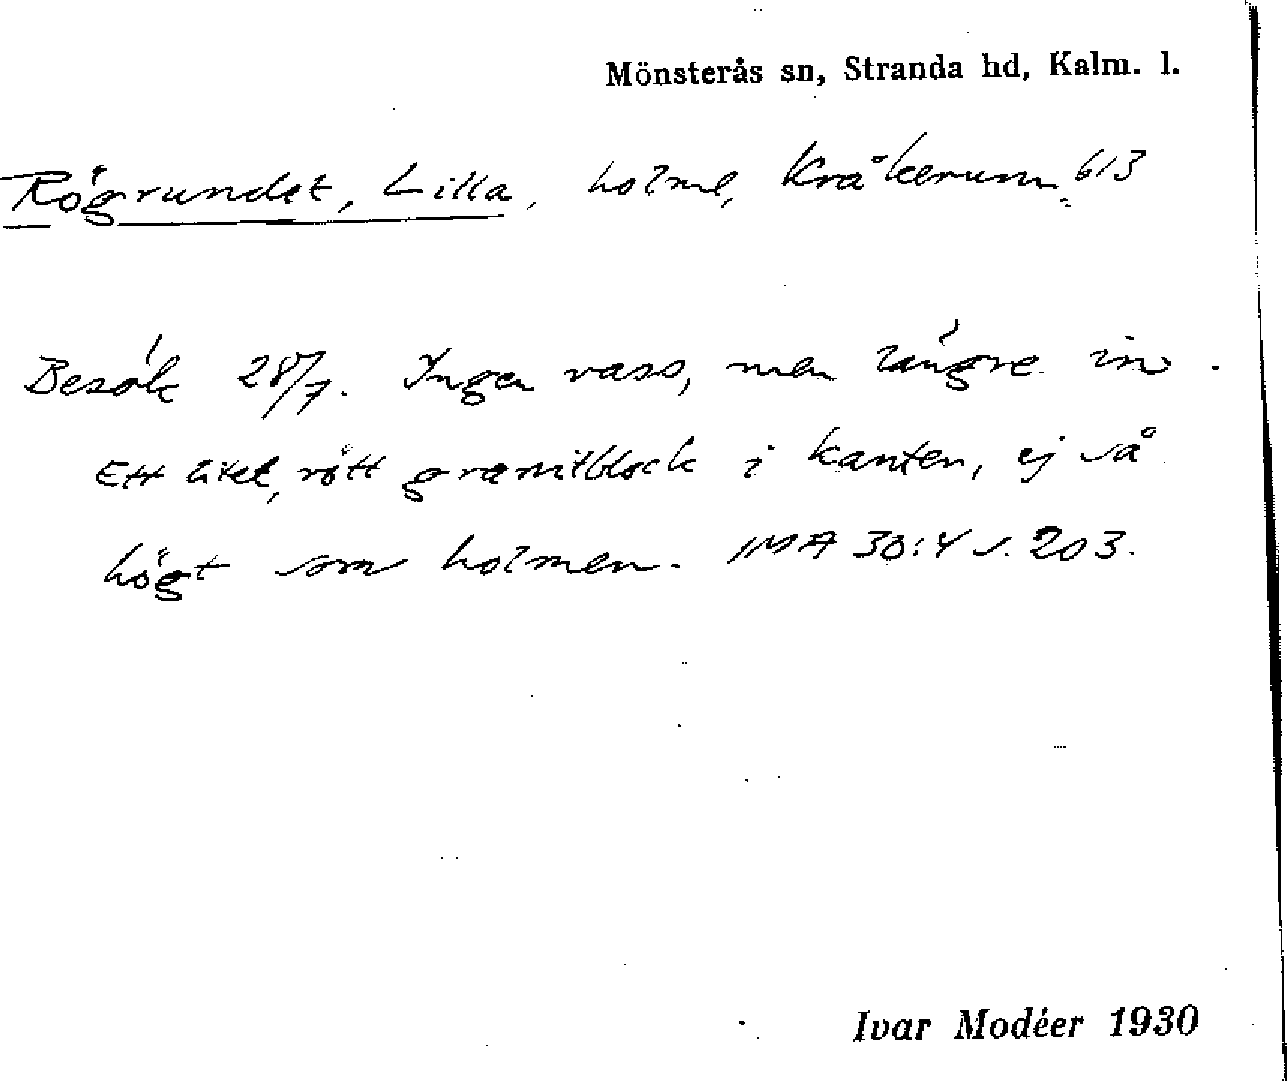 Mönsterås sn, Stranda hd, Kalm. l.
Rögrundet, Lilla, holme, Kråkerum. 613
Besök 28/7. Ingen vass, men längre in.
Ett litet, rött granitblock i kanten, ej så
högt som holmen. IMA 30:4 s. 203.
Ivar Modéer 1930